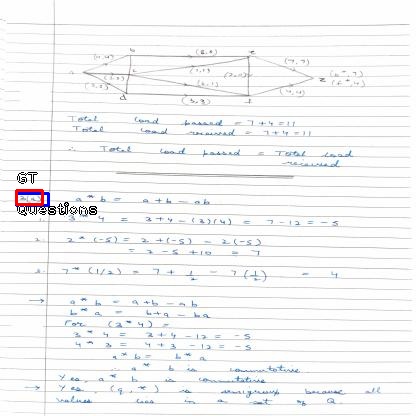 b (8,8) e
(7,7)
z (b+,7)
d (3,3) f (4,4)
Total load passed = 7+4=11
Total load received = 7+4=11
∴ Total load passed = Total load
received
GT
3(a) a * b = a+b-ab
Questions
3 * 4 = 3+4-(3)(4) = 7-12=-5
2. 2*(-5) = 2+(-5) - 2(-5)
= 2-5+10 = 7
3. 7*(1/2) = 7 + 1/2 - 7(1/2) = 4
→ a * b = a+b-ab
b * a = b+a - ba
For (3*4) =
3 * 4 = 3+4-12 = -5
4 * 3 = 4+3-12 = -5
a*b = b*a
∴ a*b is commutative
Yes, a*b is commutative
→ Yes, (q,*) is semigroup because all
values lies in a set of Q.